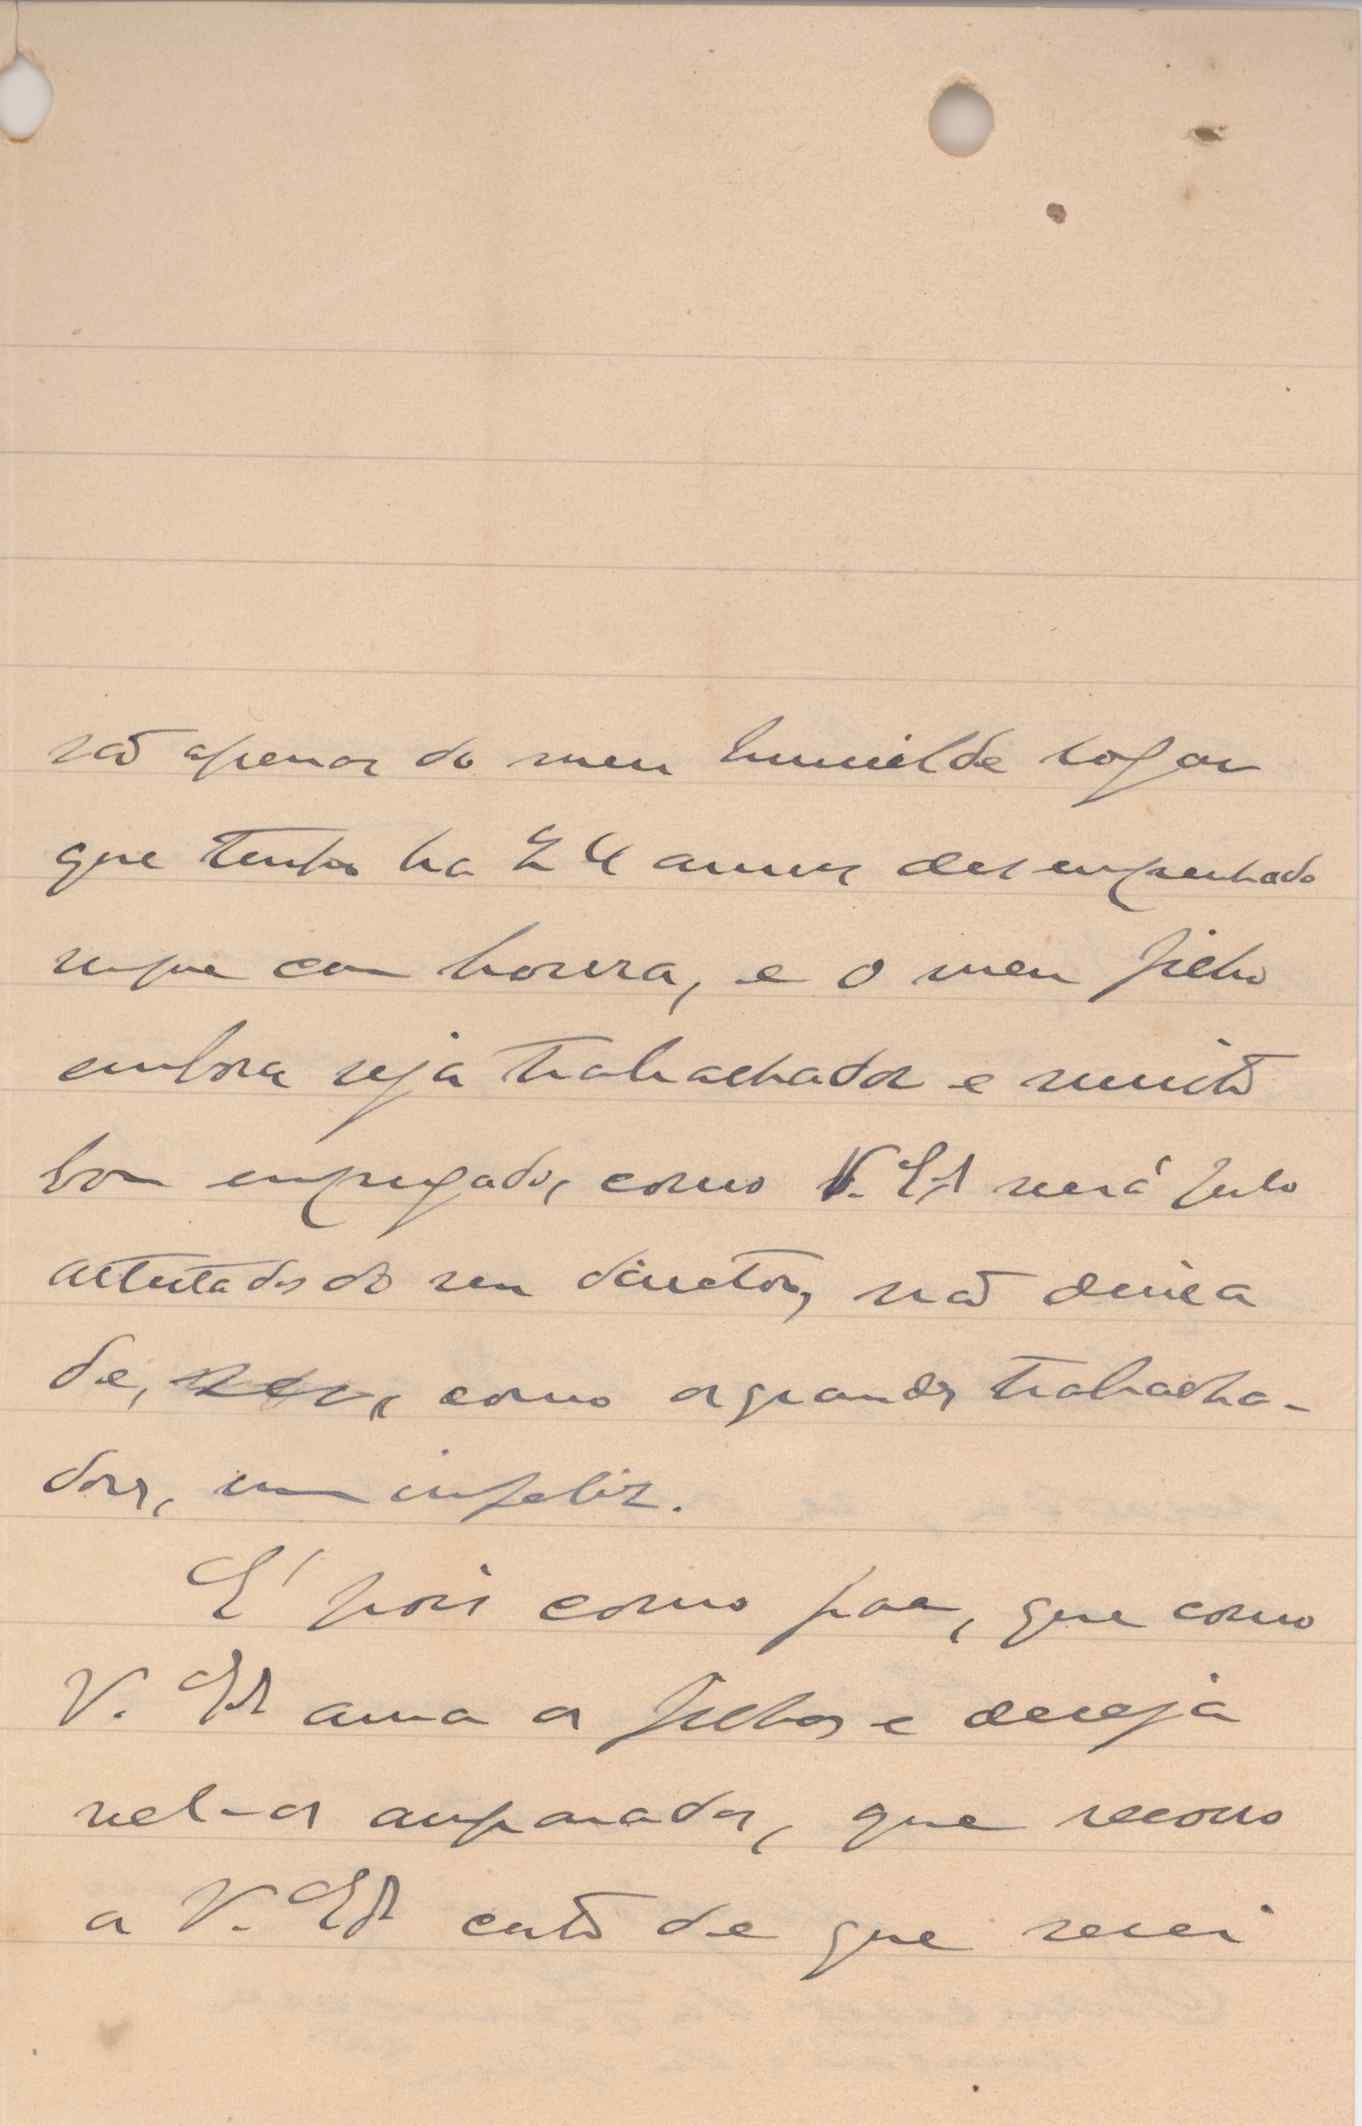 não apenas do meu humilde logar
que tenho ha 24 annos desempenhado
sempre com honra, e o meu filho
embora seja trabalhador e muito
bom empregado, como V. Exª verá pelo
attestado do seu director, não deixa
de, ser, como os grandes trabalha-
dores, um infeliz.
E' pois como pae, que como
V. Exª ama os filhos e deseja
vel-os amparados, que recorro
a V. Exª certo de que serei